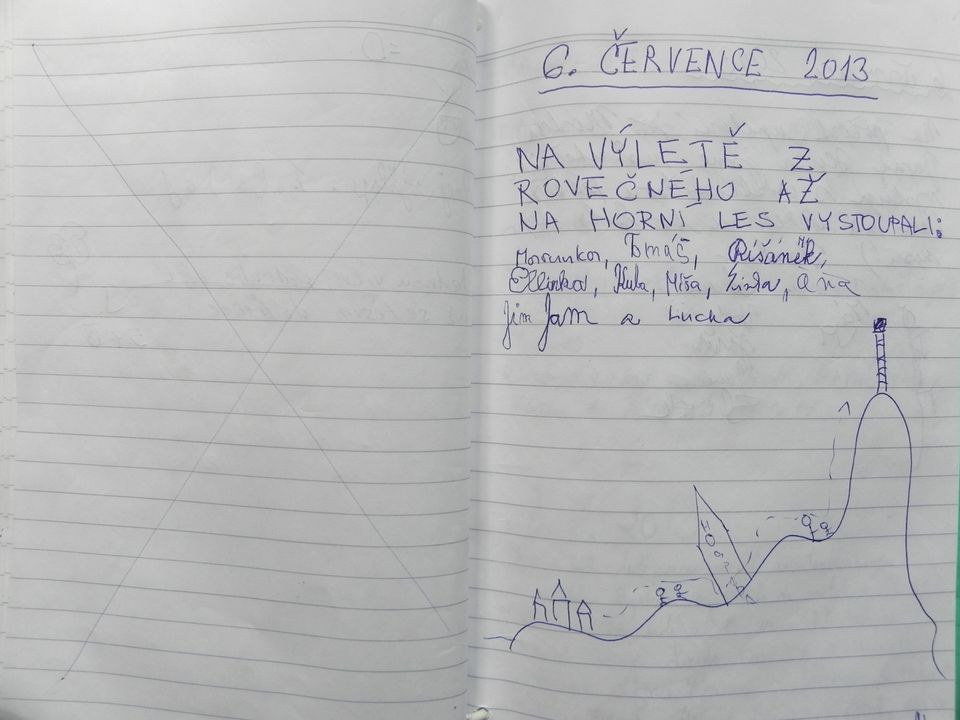 6. ČERVENCE 2013
NA VÝLETĚ Z
ROVEČNÉHO AŽ
NA HORNÍ LES VYSTOUPALI:
Tomáš, Ríšánek,
Ellinka, Kuba, Míša,
Jim Jam a Lucka